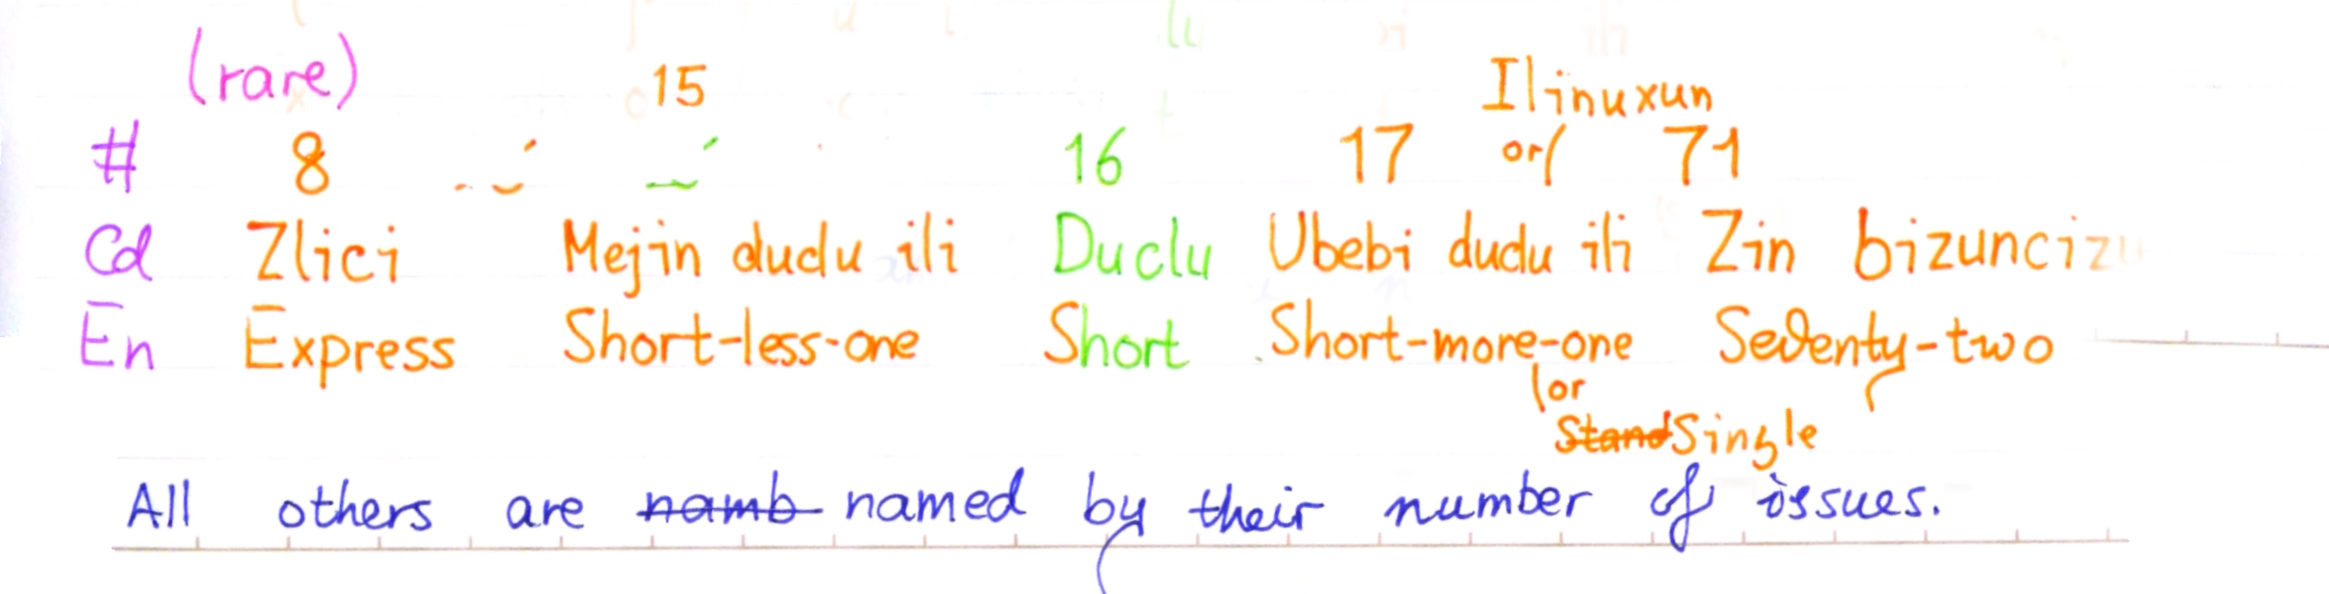 (rare) 15 Ilinuxun
# 8 16 17 or 71
Cd Zlici Mejin dudu ili Duclu Ubebi dudu ili Zin bizuncizu
En Express Short-less-one Short Short-more-one Seventy-two
(or
Stand Single
All others are namb named by their number of issues.